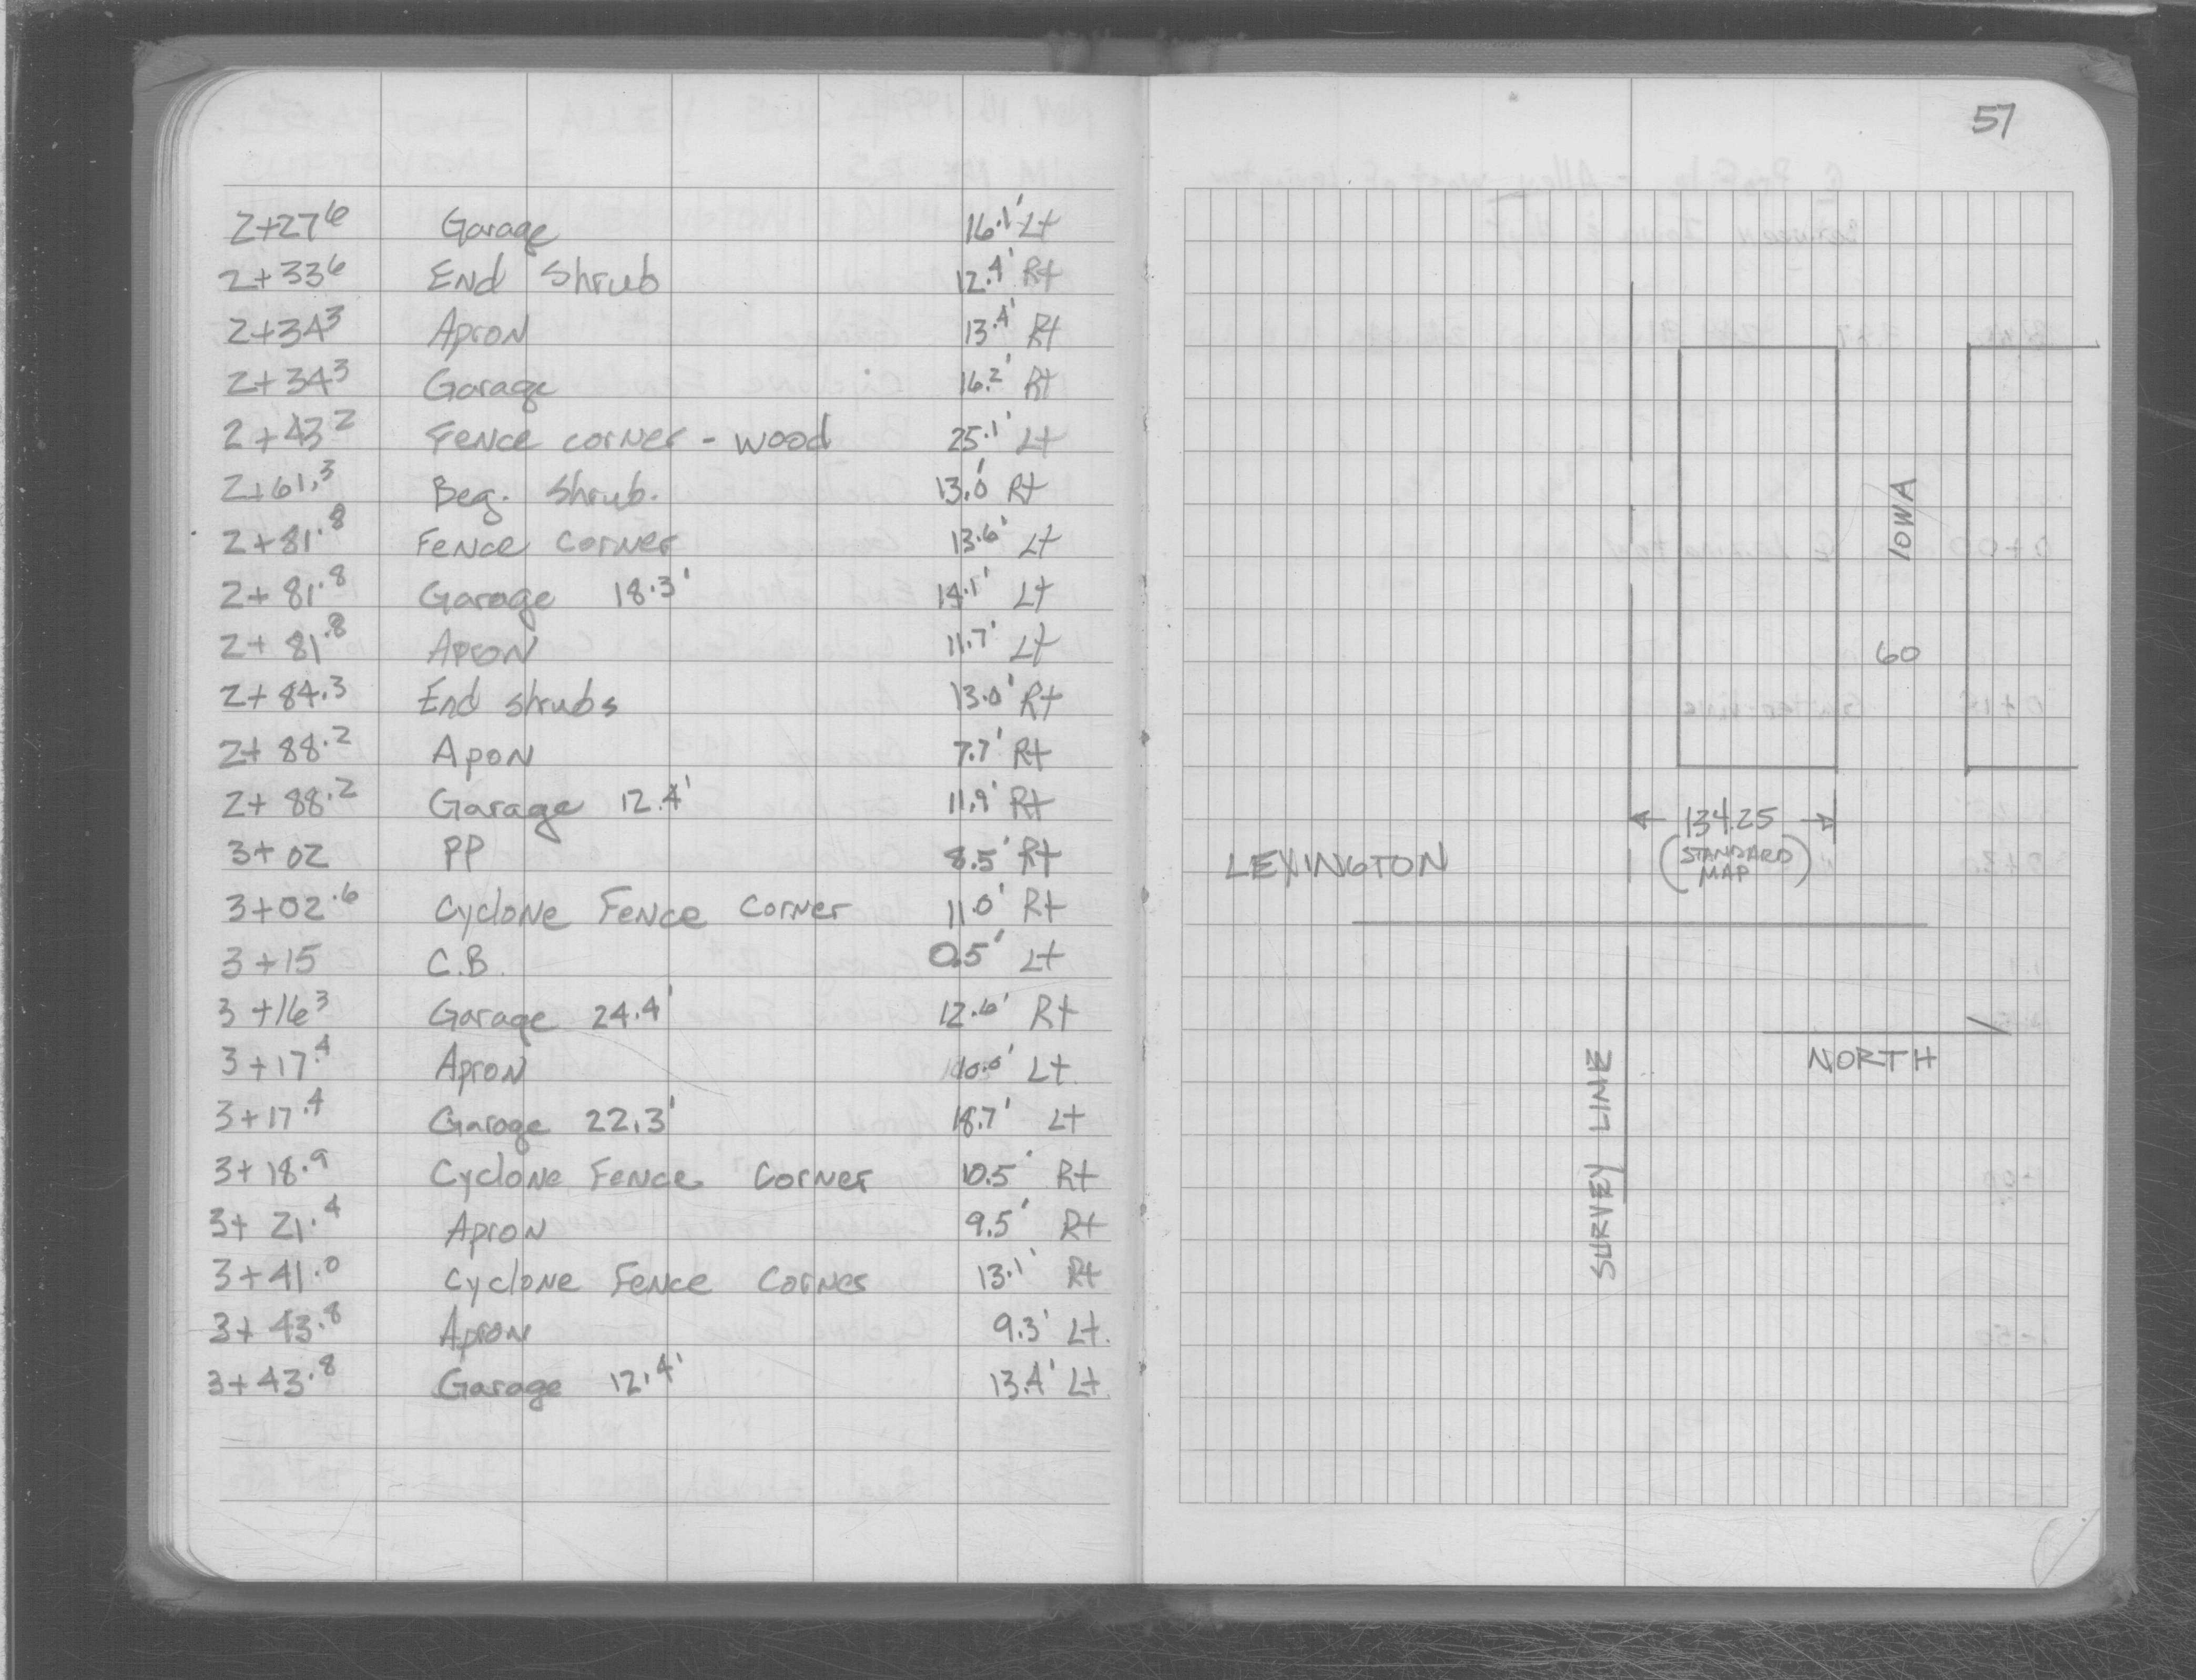 2+27⁶ Garage 16.1' Lt
2+33⁶ End Shrub 12.4' Rt
2+34³ Apron 13.4' Rt
2+34³ Garage 16.2' Rt
2+43² Fence corner - wood 25.1' Lt
2+61.³ Beg. Shrub. 13.0' Rt
2+81.⁸ Fence Corner 13.6' Lt
2+81.⁸ Garage 18.3' 14.1' Lt
2+81.⁸ Apron 11.7' Lt
2+84.³ End shrubs 13.0' Rt
2+88.² Apon 7.7' Rt
2+88.² Garage 12.4' 11.9' Rt
3+02 PP 8.5' Rt
3+02.⁶ Cyclone Fence Corner 11.0' Rt
3+15 C.B. 0.5' Lt
3+16³ Garage 24.4' 12.6' Rt
3+17.⁴ Apron 10.0' Lt
3+17.⁴ Garage 22.3' 18.7' Lt
3+18.⁹ Cyclone Fence Corner 10.5' Rt
3+21.⁴ Apron 9.5' Rt
3+41.⁰ Cyclone Fence Corner 13.1' Rt
3+43.⁸ Apron 9.3' Lt.
3+43.⁸ Garage 12.4' 13.4' Lt.
57
IOWA
60
134.25
(STANDARD
MAP)
LEXINGTON
NORTH
SURVEY LINE